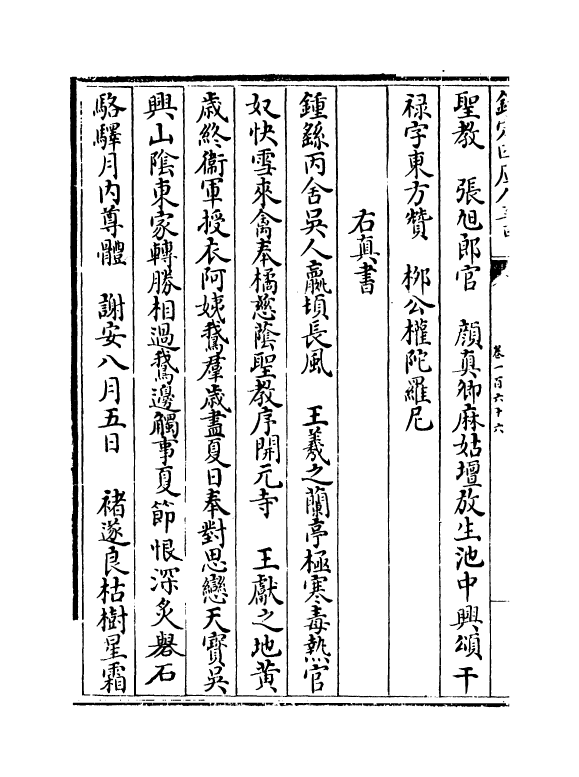 卷一百六十六
聖教　張旭郎官　顔真卿麻姑壇放生池中興頌干
禄字東方贊　栁公權陀羅尼
右真書
鍾繇丙舍吳人羸頓長風　王羲之蘭亭極寒毒熱官
奴快雪來禽奉橘慈蔭聖教序開元寺　王獻之地黄
歳終衞軍授衣阿姨鵞羣歳盡夏日奉對思戀天寳吳
興山隂東家轉勝相過鵞邊觸事夏節恨深炙礜石
駱驛月内尊體　謝安八月五日　褚遂良枯樹星霜